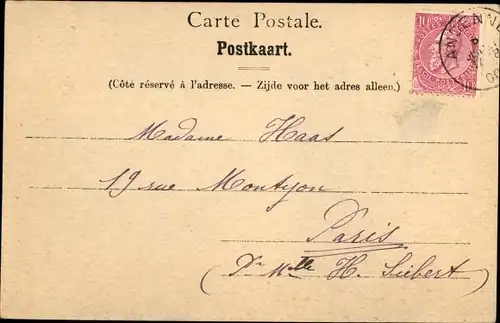 Carte Postale.
Postkaart.
(Côté réservé à l'adresse. — Zijde voor het adres alleen.)
10
ANDENNE
Madame Haas
19 rue Montyon
Paris
(Pr Mlle H. Siebert)